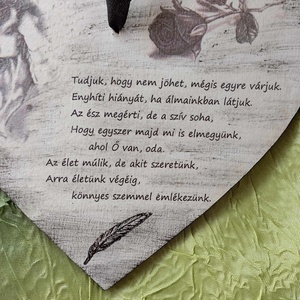 Tudjuk, hogy nem jöhet, mégis egyre várjuk.
Enyhíti hiányát, ha álmainkban látjuk.
Az ész megérti, de a szív soha,
Hogy egyszer majd mi is elmegyünk,
ahol Ő van, oda.
Az élet múlik, de akit szeretünk,
Arra életünk végéig,
könnyes szemmel emlékezünk.